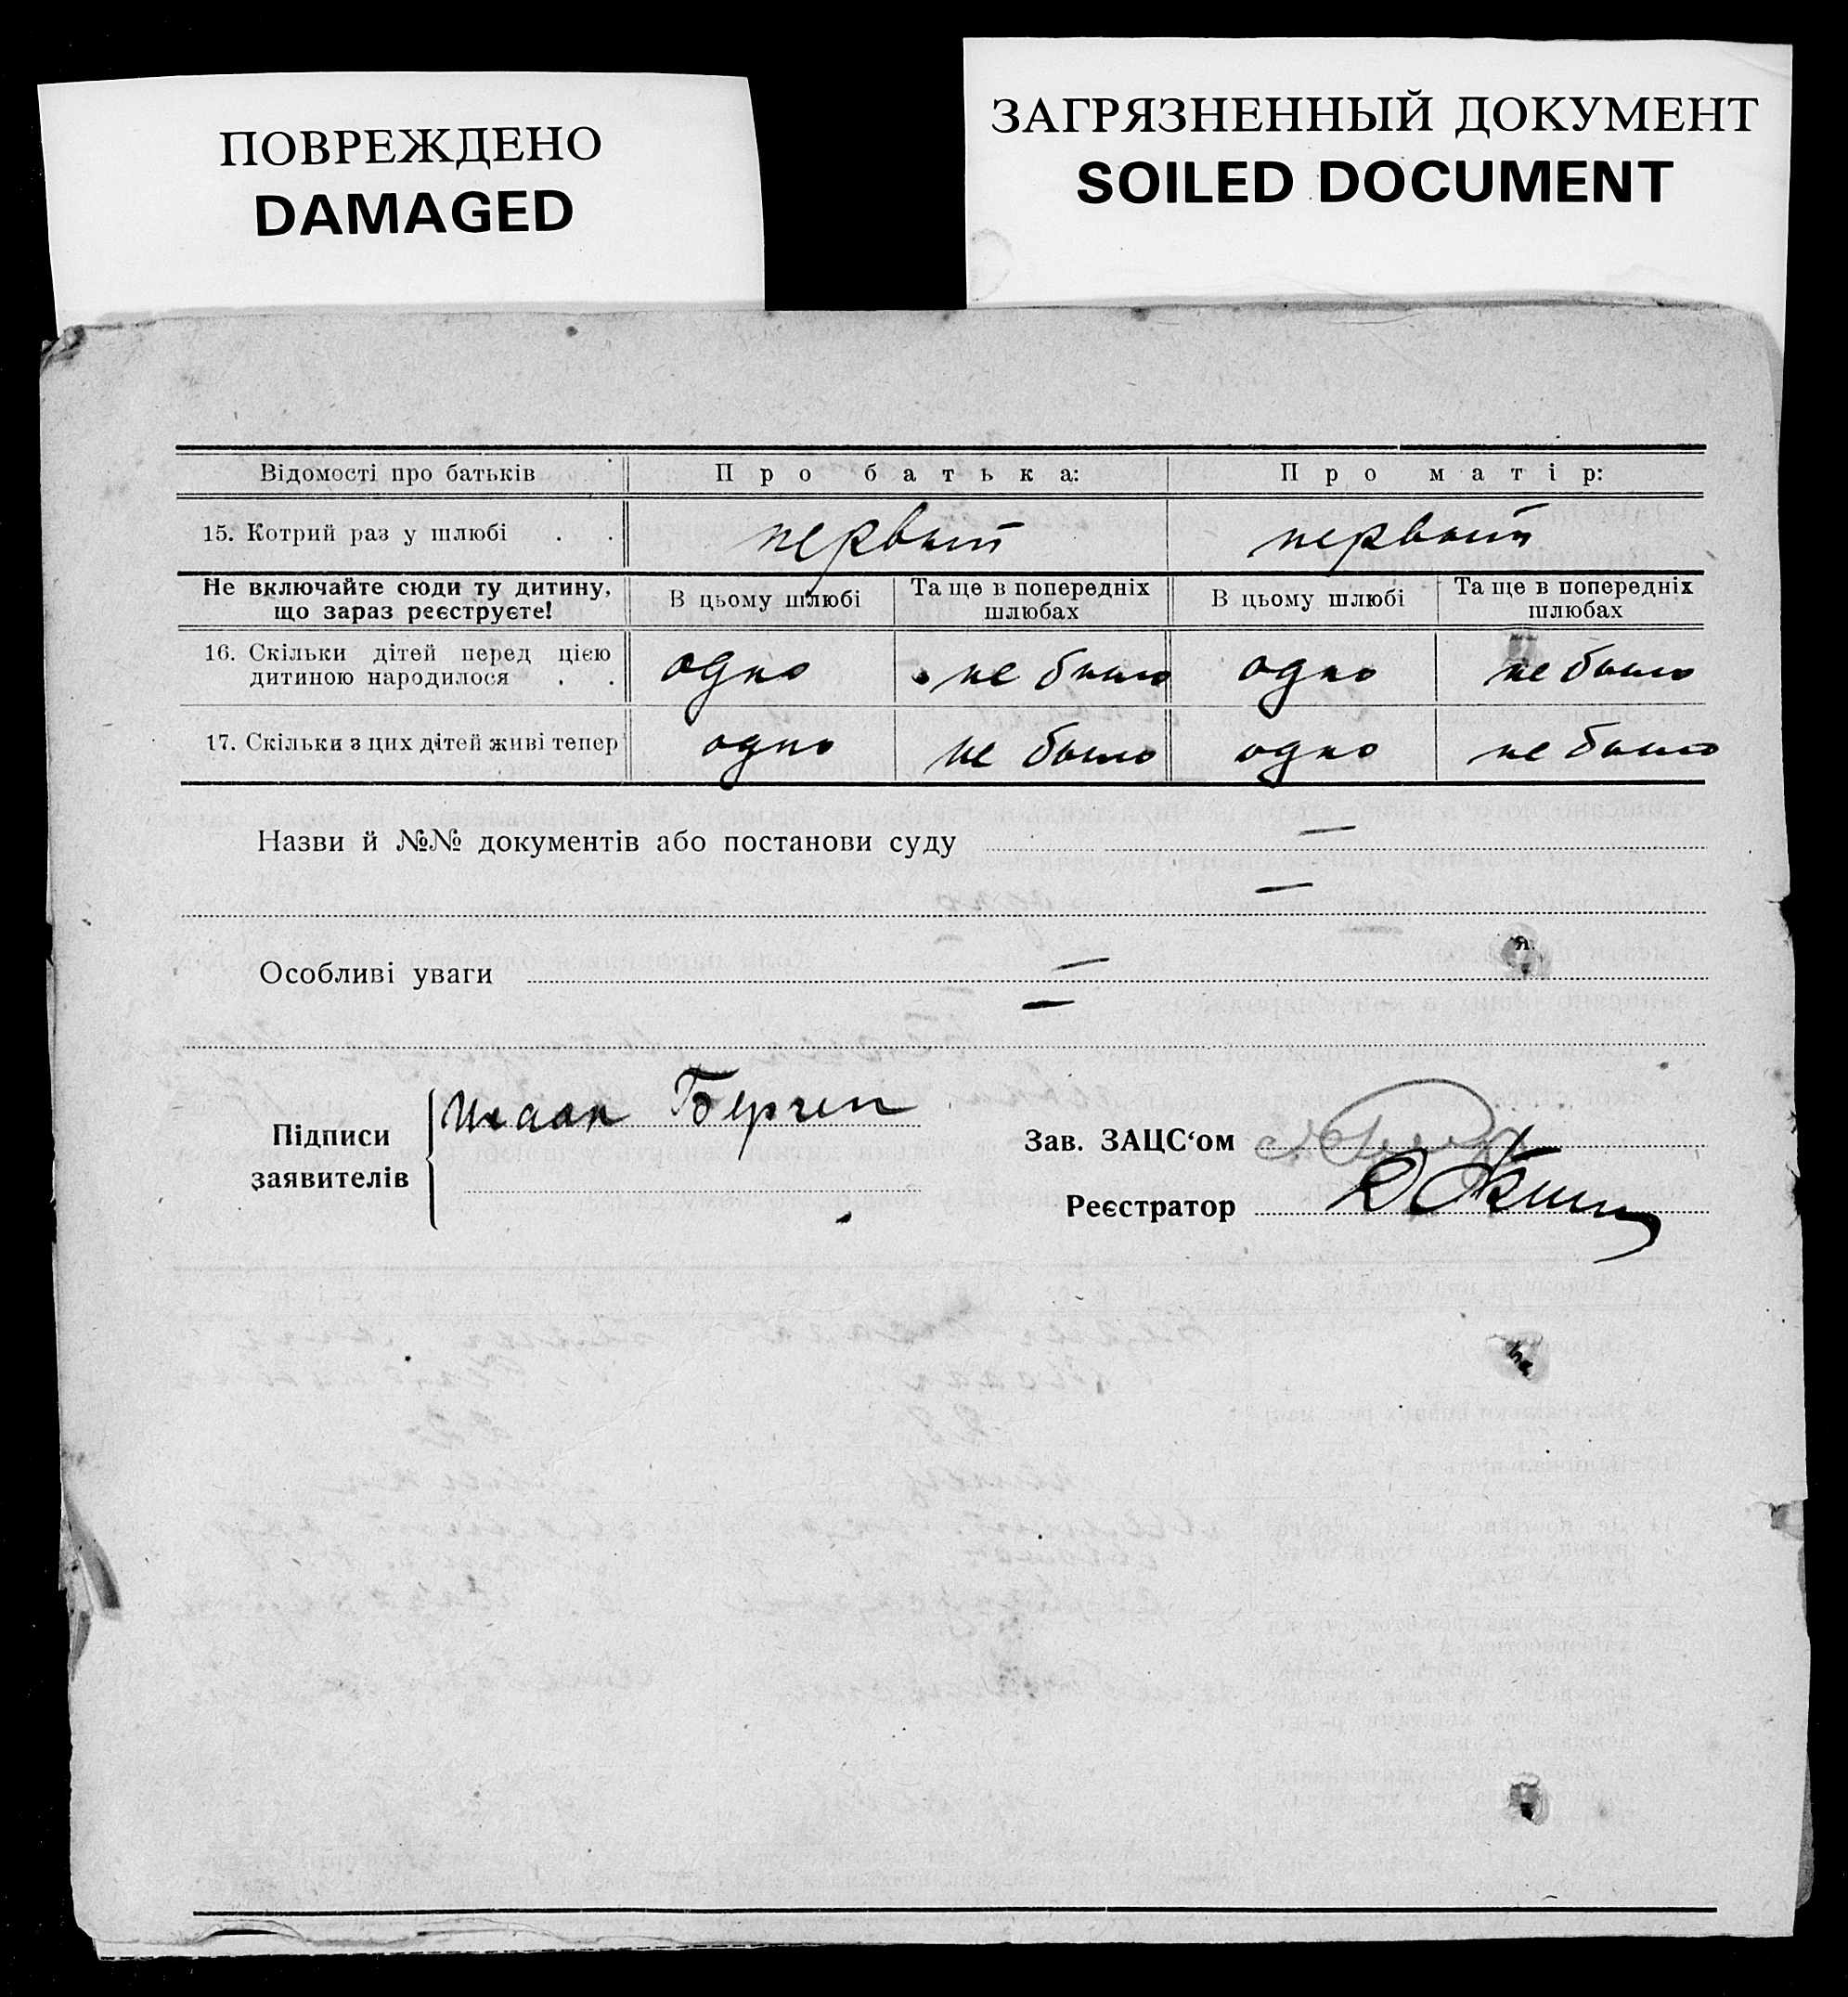 ПОВРЕЖДЕНО
DAMAGED
ЗАГРЯЗНЕННЫЙ ДОКУМЕНТ
SOILED DOCUMENT
Відомості про батьків Про батька: Про матір:
15. Котрий раз у шлюбі . . первый первый
Не включайте сюди ту дитину, що зараз реєструєте! В цьому шлюбі Та ще в попередніх шлюбах В цьому шлюбі Та ще в попередніх шлюбах
16. Скільки дітей перед цією дитиною народилося . . одно не было одно не было
17. Скільки з цих дітей живі тепер одно не было одно не было
Назви й №№ документів або постанови суду —
—
Особливі уваги —
—
Підписи заявителів
Зав. ЗАЦС‘ом
Реєстратор